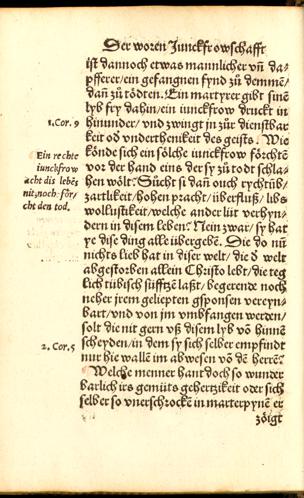 Der woren Junckfrowschafft
ist dannoch etwas mannlicher vñ da-
pfferer/ein gefangnen fynd zů demmẽ/
dañ zů tödten. Ein martyrer gibt sinẽ
lyb fry dahin/ein iunckfrow druckt in
1.Cor. 9
hinunder/vnd zwingt jn zůr dienstbar
keit vnd vnderthenikeit des geists. Wie
könde sich ein sölche iunckfrow förchtẽ
vor der hand eins der sy zů todt schla-
hen wölt? Sůcht si dañ ouch rychtůb/
zartlikeit/hohen pracht/überfluß/libs
wollustikeit/welche ander lüt verhyn-
dern in disem leben? Nein zwar/sy hat
ye dise ding alle übergebẽ. Die do nũ
Ein rechte
iunckfrow
acht dis lebẽs
nit,noch för-
cht den tod.
nichts lieb hat in diser welt/die d' welt
abgestorben allein Christo lebt/die teg
lich tübisch süfftzẽ laßt/begerende noch
neher jrem geliepten gsponsen vereyn-
bart/vnd von jm vmbfangen werden/
solt die nit gern vß disem lyb võ hinnẽ
scheyden/in dem sy sich selber empfindt
2. Cor.5
nur hie wallẽ im abwesen võ dẽ herrẽ?
Welche menner hant doch so wunder
barlich irs gemüts gehertzikeit oder sich
selber so vnerschrockẽ in marterpynẽ er
zöigt